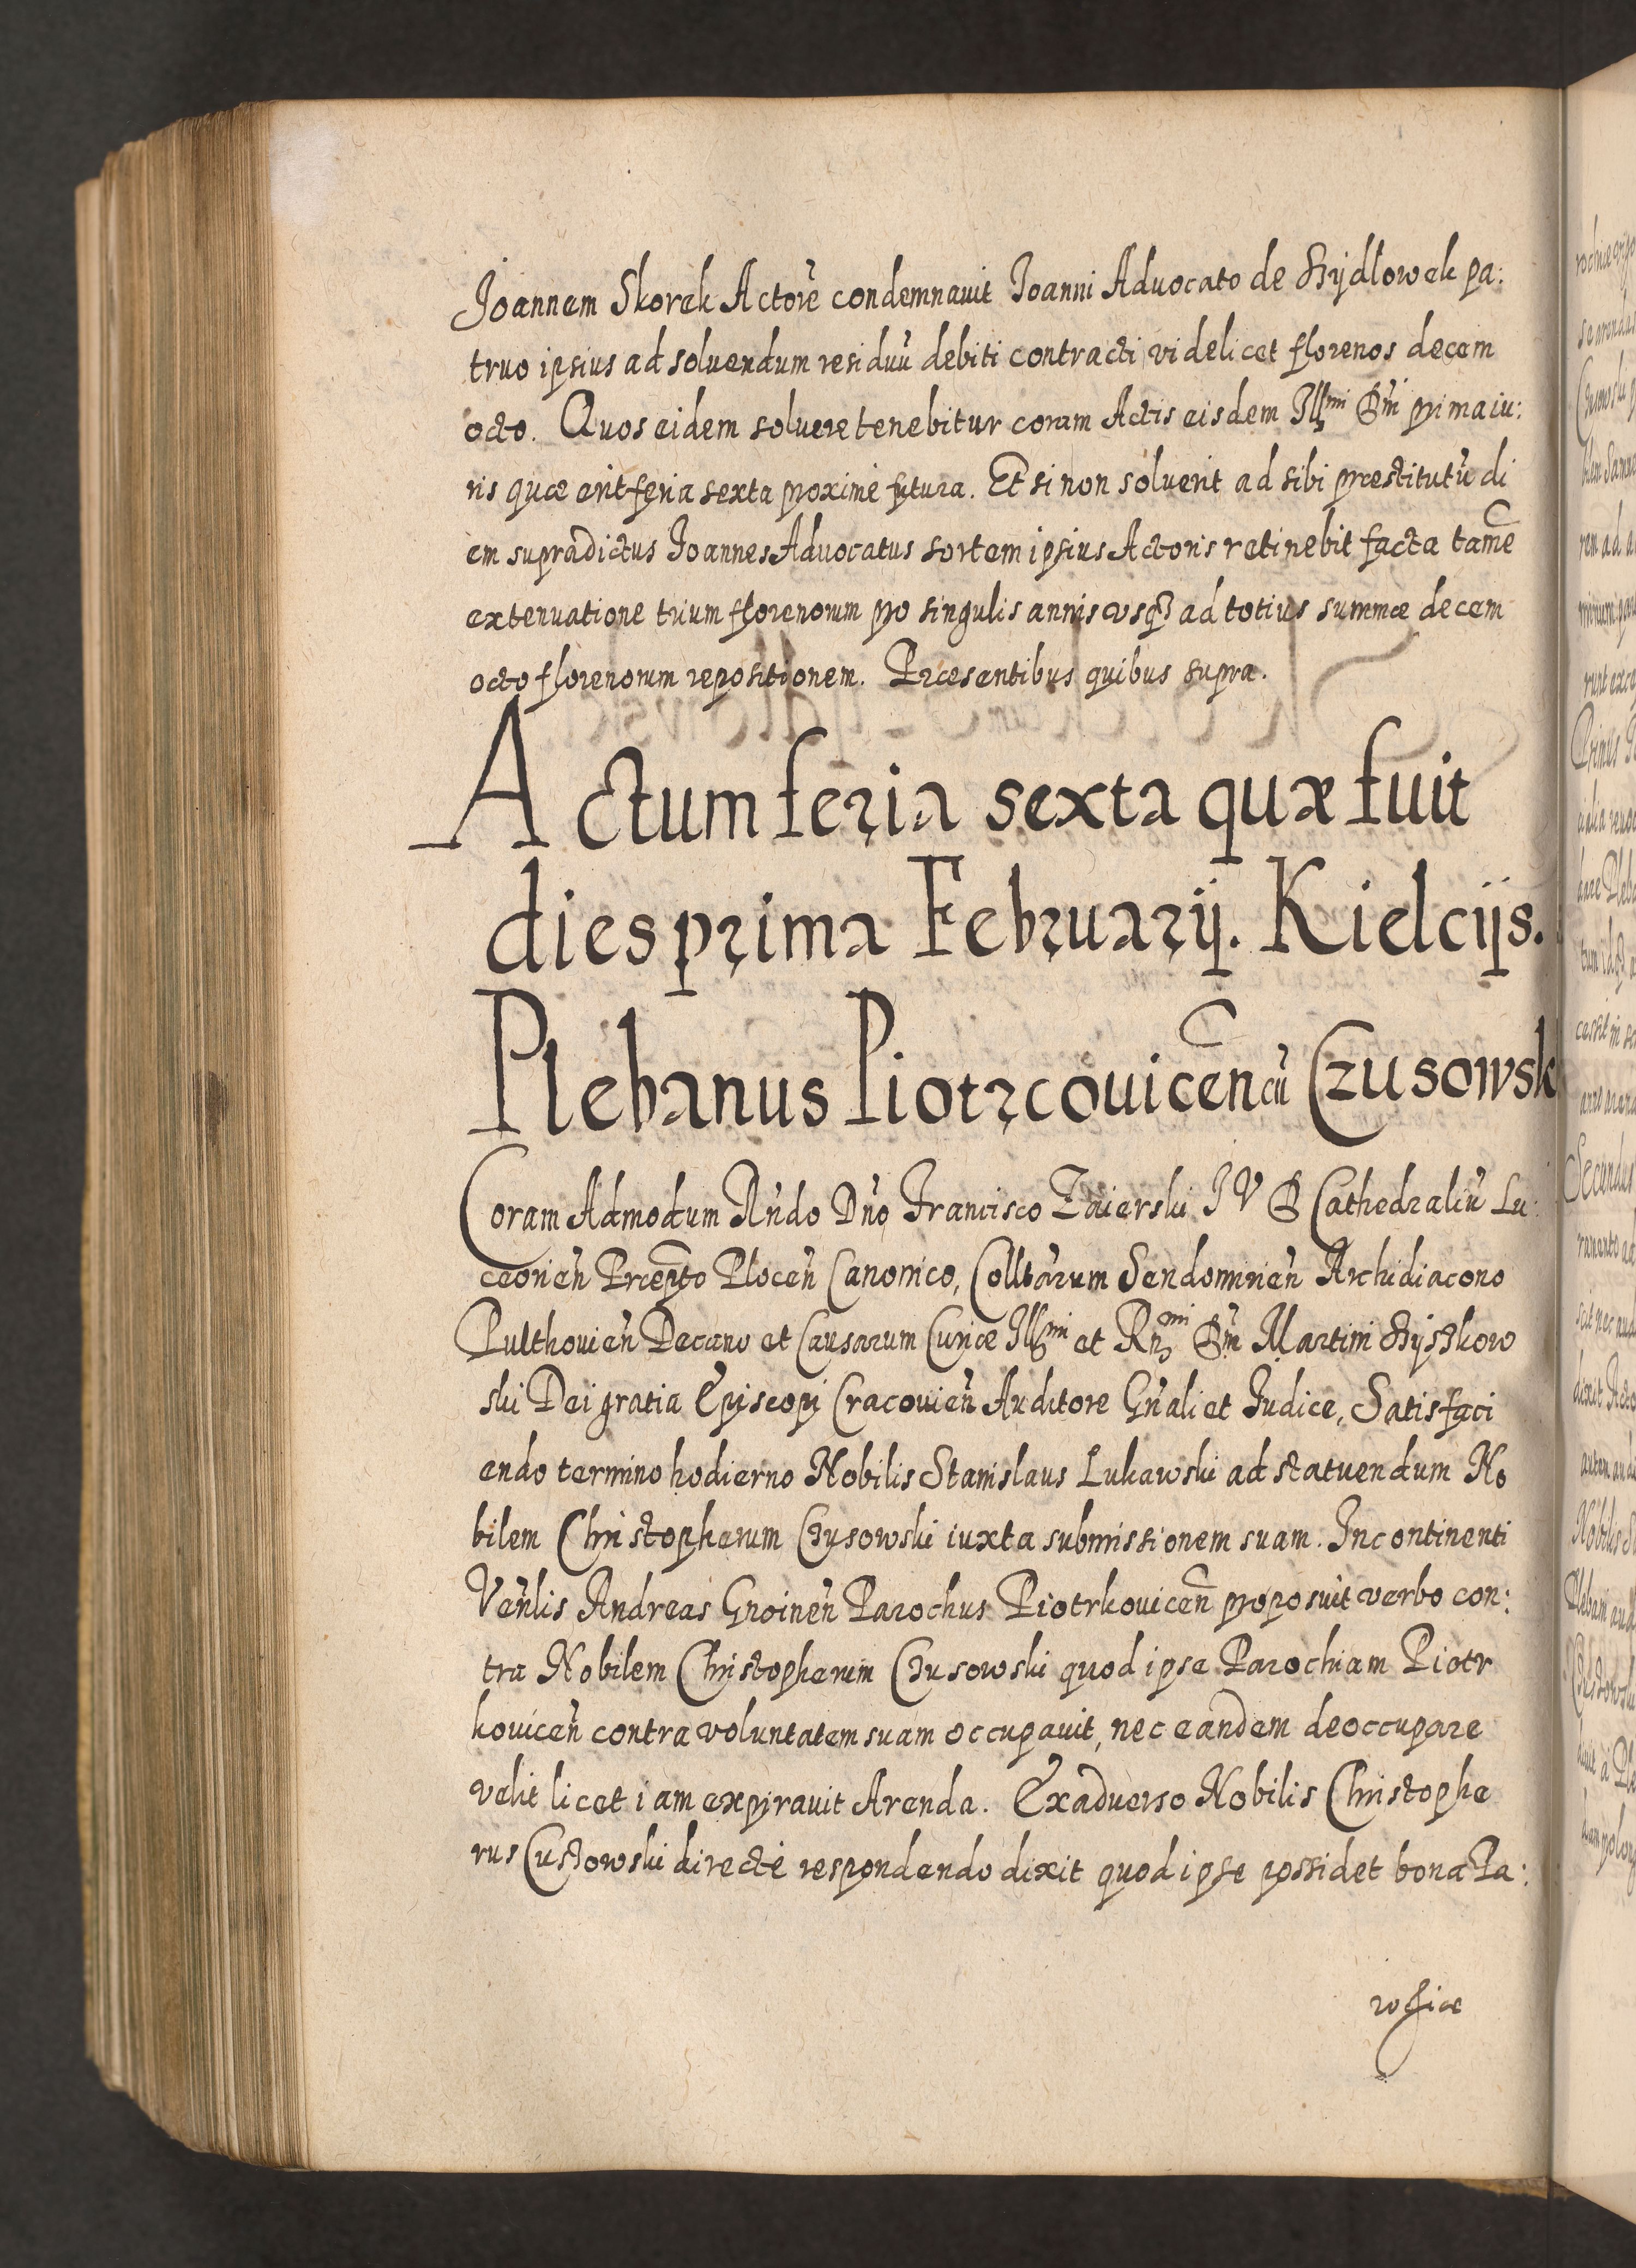 Joannem Skorek Actorẽ condemnauit Joanni Aduocato de Szydlowek pa:
truo ipsius ad soluendum residuũ debiti contracti videlicet florenos decem
octo. Quos eidem soluere tenebitur coram Actis eisdem Illmi Dni prima iu:
ris quæ erit feria sexta proximè futura. Et si non soluerit ad sibi præstitutũ di
em supradictus Joannes Aduocatus sortem ipsius Actoris retinebit facta tamẽ
extenuatione trium florenorum pro singulis annis usq3 ad totius summæ decem
octo florenorum repositionem. Præsentibus quibus supra.
Actum feria sexta quæ fuit
dies prima Februarij. Kielcijs.
Plebanus Piotrcouicen̄ cũ Czusowsk
Coram Admodum Rñdo Dño Francisco Zaierski J V D Cathedraliũ Lu:
ceorien̄ Præpto Plocen̄ Canonico, Colltarum Sendomirien̄ Archidiacono
Pulthouien̄ Decano et Causarum Curiæ Illmi et Rñmi Dñi Martini Szyszkow
ski Dei gratia Episcopi Cracouien̄ Auditore Gñali et Judice, Satisfaci
endo termino hodierno Nobilis Stanislaus Lukawski ad statuendum No
bilem Christopherum Czusowski iuxta submissionem suam. Incontinenti
Venlis Andreas Gnoinen̄ Parochus Piotrkouicen̄ proposuit verbo con:
tra Nobilem Christopherum Czusowski quod ipse Parochiam Piotr
kouicen̄ contra voluntatem suam occupauit, nec eandem deoccupare
velit licet iam expirauit Arenda. Exaduerso Nobilis Christophe
rus Custowski directè respondendo dixit quod ipse possidet bona Pa:
rochiæ